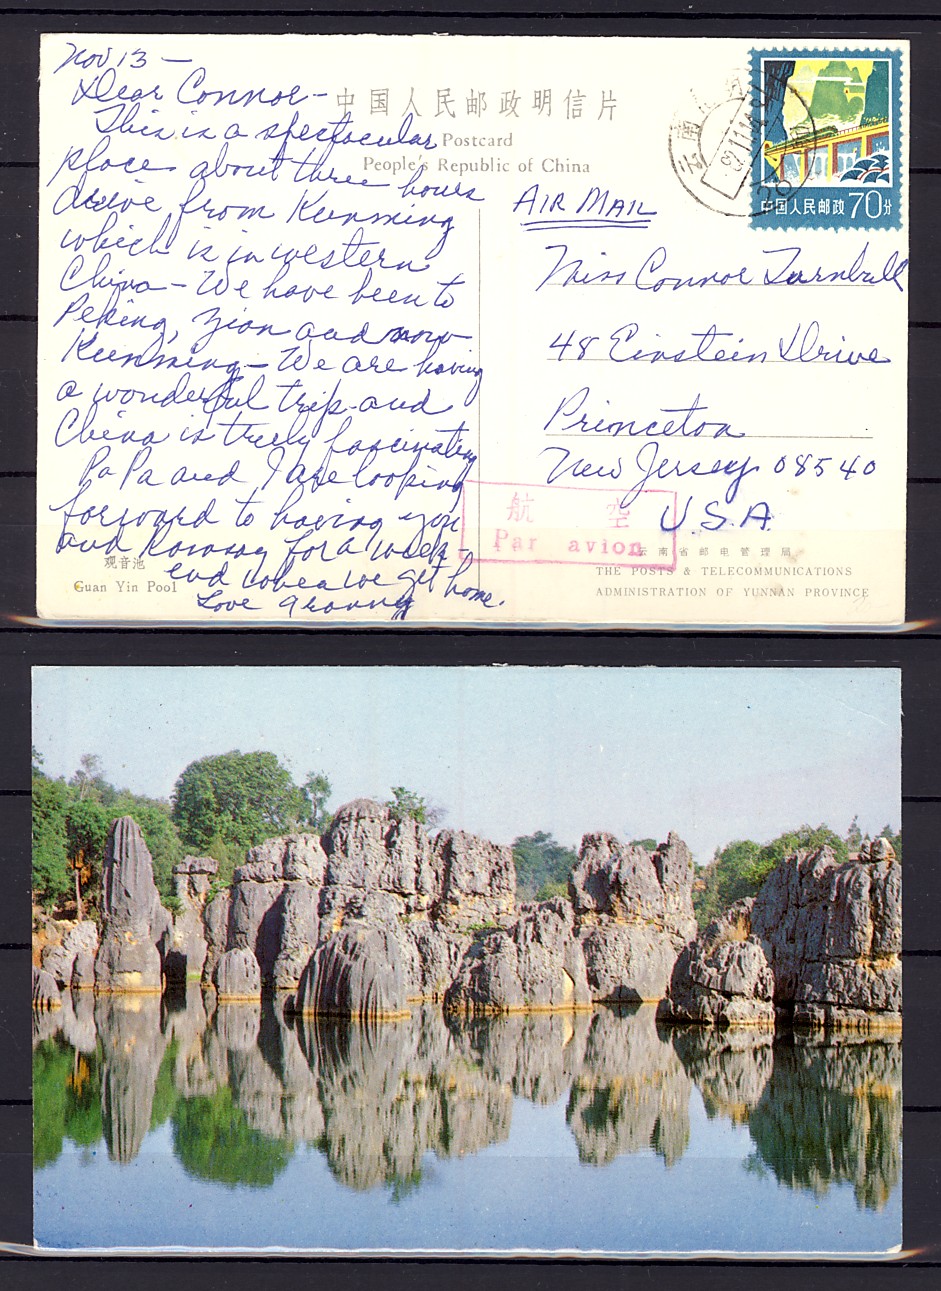 Nov 13 —
Dear Connor –
This is a spectacular
place about three hours
drive from Kunming
which is in western
China – We have been to
Peking, Zian and now
Kunming – We are having
a wonderful trip and
China is truly fascinating
PaPa and I are looking
forward to having you
and Ramsay for a week-
end when we get home.
Love Granny
中国人民邮政明信片
Postcard
People's Republic of China
AIR MAIL
中国人民邮政 70分
云南
Miss Connor Turnbull
48 Einstein Drive
Princeton
New Jersey 08540
U.S.A.
航 空
Par avion
观音池
Guan Yin Pool
云南省邮电管理局
THE POSTS & TELECOMMUNICATIONS
ADMINISTRATION OF YUNNAN PROVINCE